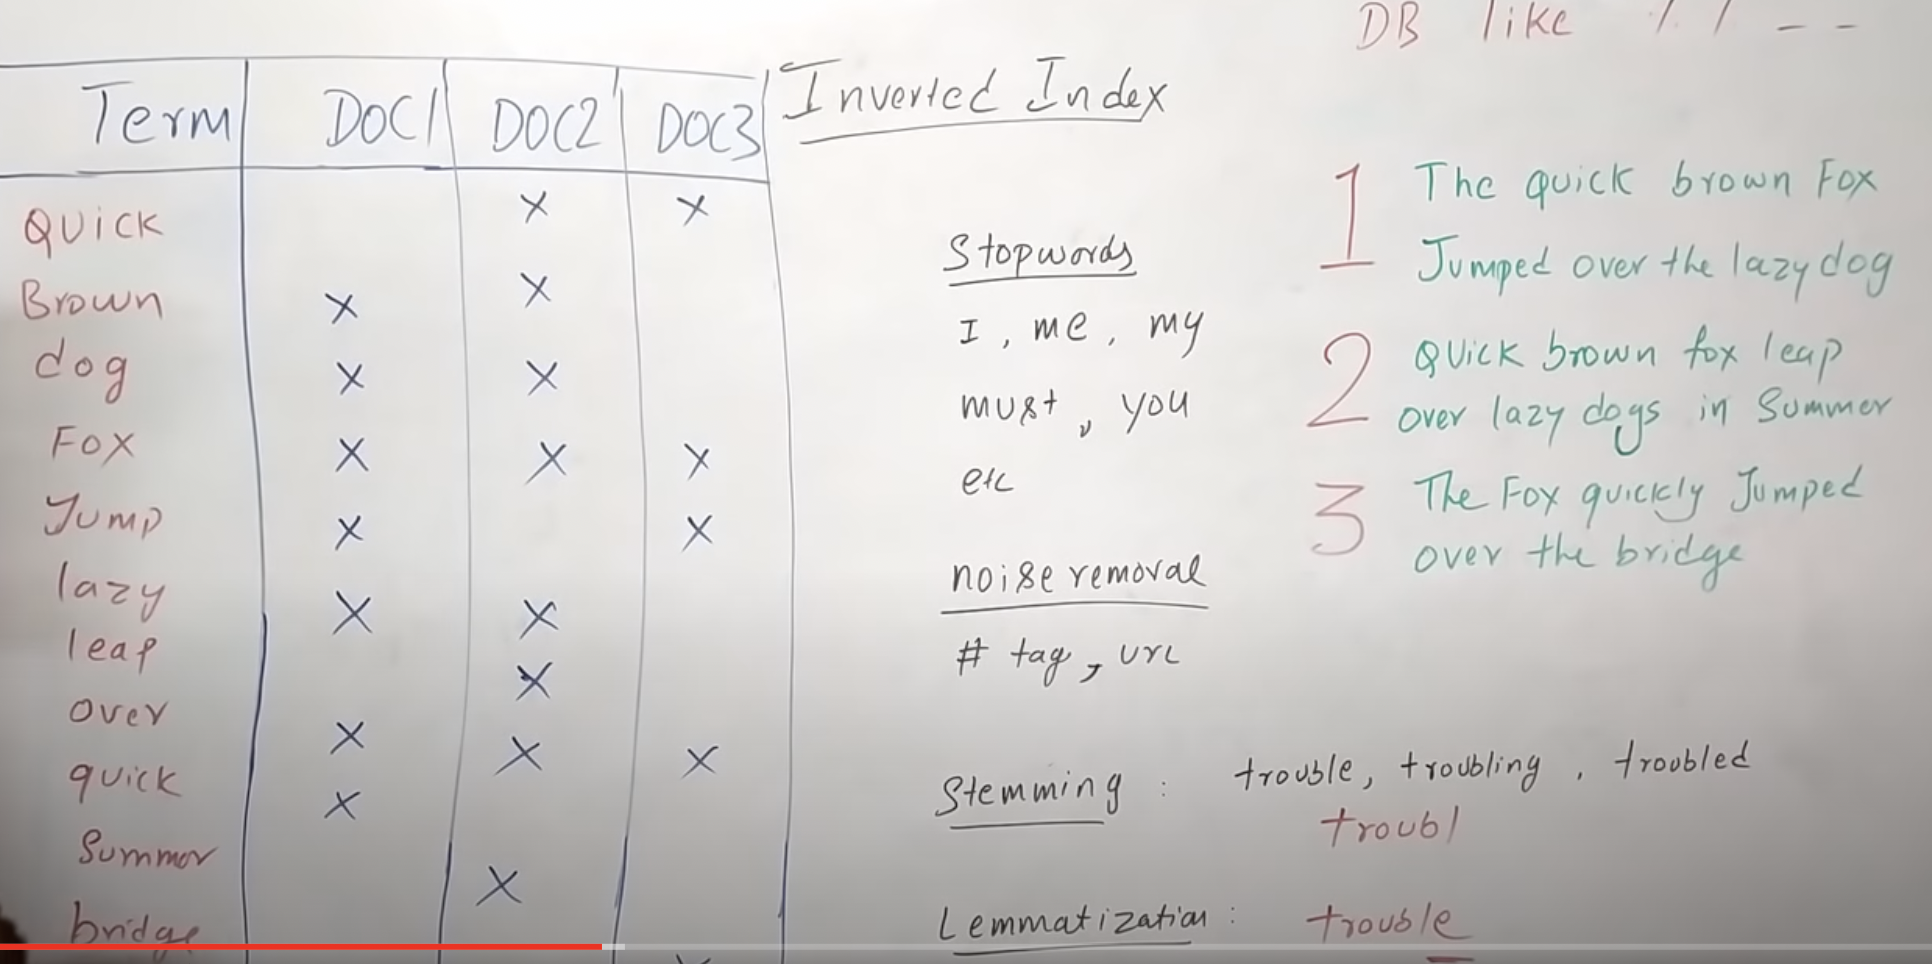 DB like % / - -
Term DOC1 DOC2 DOC3
Inverted Index
Quick x x
Brown x x
dog x x
Fox x x x
Jump x x
lazy x x
leap x
over x x x
quick x
Summer x
bridge
Stopwords
I , me , my
must , you
etc
noise removal
# tag , url
Stemming : trouble, troubling , troubled
troubl
Lemmatization : trouble
1 The quick brown Fox
Jumped over the lazy dog
2 Quick brown fox leap
over lazy dogs in Summer
3 The Fox quickly Jumped
over the bridge